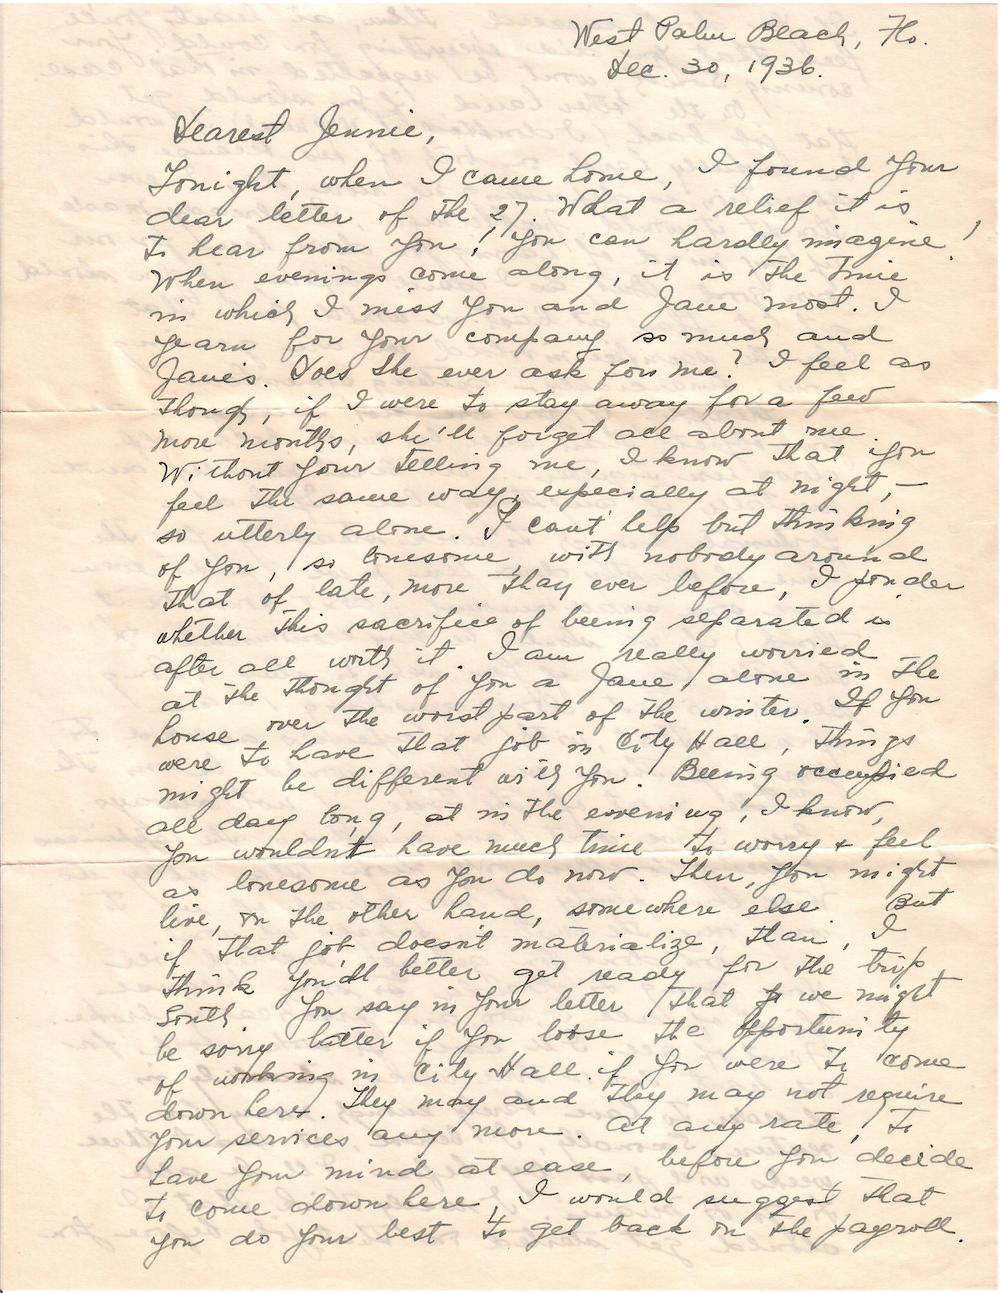 West Palm Beach, Flo.
Dec. 30, 1936.
Dearest Jennie,
Tonight, when I came home, I found your
dear letter of the 27. What a relief it is
to hear from you! You can hardly imagine!
When evenings come along, it is the time
in which I miss you and Jane most. I
yearn for your company so much and
Jane's. Does she ever ask for me? I feel as
though, if I were to stay away for a few
more months, she'll forget all about me.
Without your telling me, I know that you
feel the same way, especially at night, —
so utterly alone. I can't help but thinking
of you, so lonesome, with nobody around
that of late, more than ever before, I ponder
whether this sacrifice of beeing separated is
after all worth it. I am really worried
at the thought of you a Jane alone in the
house over the worst part of the winter. If you
were to have that job in City Hall, things
might be different with you. Beeing occupied
all day long, at in the evening, I know,
you wouldn't have much time to worry + feel
as lonesome as you do now. Then, you might
live, on the other hand, somewhere else. But
if that job doesn't materialize, than, I
think you'dl better get ready for the trip
South. You say in your letter that we might
be sorry latter if you loose the opportunity
of working in City Hall if you were to come
down here. They may and they may not require
your services any more. At any rate, to
have your mind at ease, before you decide
to come down here, I would suggest that
you do your best to get back on the payroll.